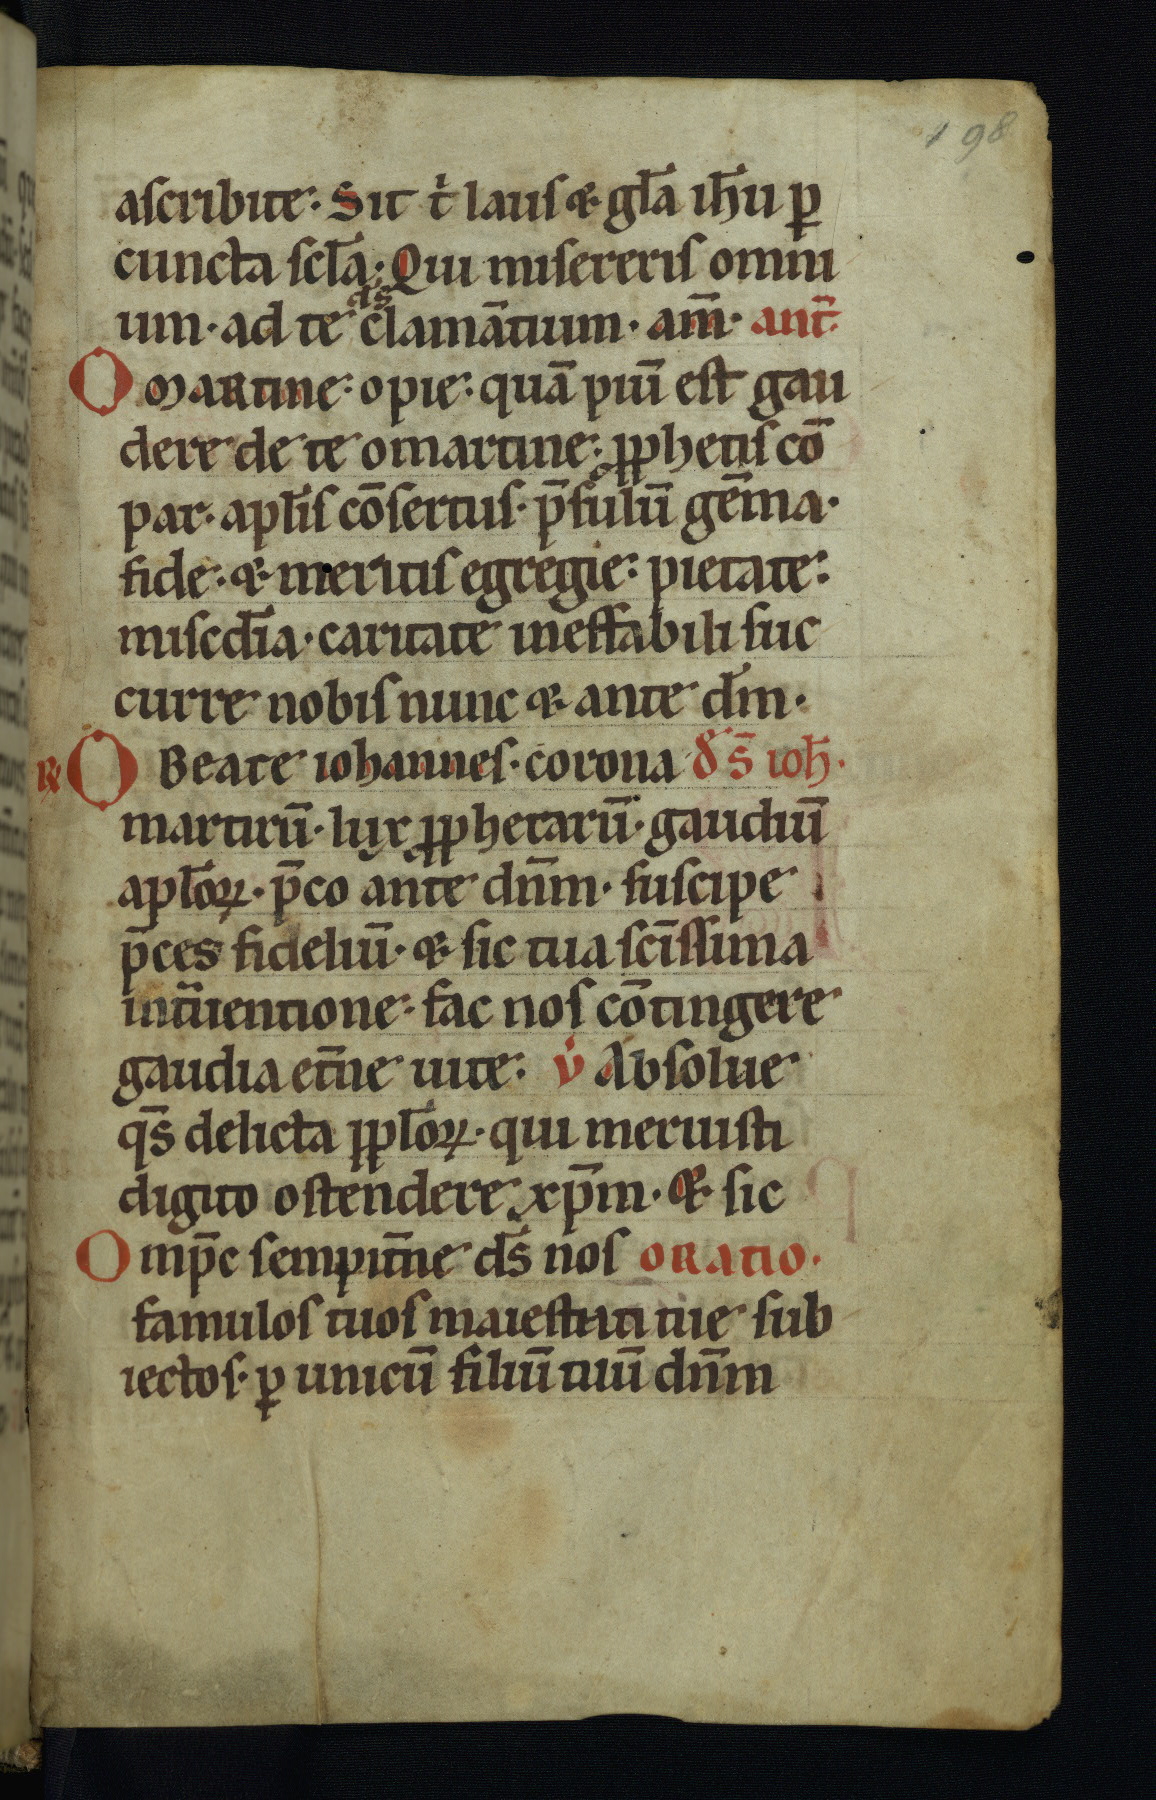 198
ascribite. Sit t̄ laus & gl̄a ih̄u ꝑ
cuncta scl̄a. Qui misereris omni
um. ad te ds clamātium. am̄. ant̄.
O Martine. o pie. quā piū est gau
dere de te o martine. ꝓphetis cō
par. apl̄is cōsertus. p̄sulū gēma.
fide. & meritis egregie. pietate.
miscd̄ia. caritate ineffabili suc
curre nobis nunc & ante dm̄.
R O Beate iohannes. corona d̄ s̄ ioh̄.
martirū. lux ꝓphetarū. gaudiū
apl̄oꝝ. p̄co ante dn̄m. suscipe
p̄ces fideliū. & sic tua sc̄issima
int̄uentione. fac nos cōtingere
gaudia et̄ne uite. v̇ Absolue
qs̄ delicta ppl̄oꝝ. qui meruisti
digito ostendere xp̄m. & sic
Omp̄c sempit̄ne ds̄ nos oratio.
famulos tuos maiestati tue sub
iectos. ꝑ unicū filiū tuū dn̄m